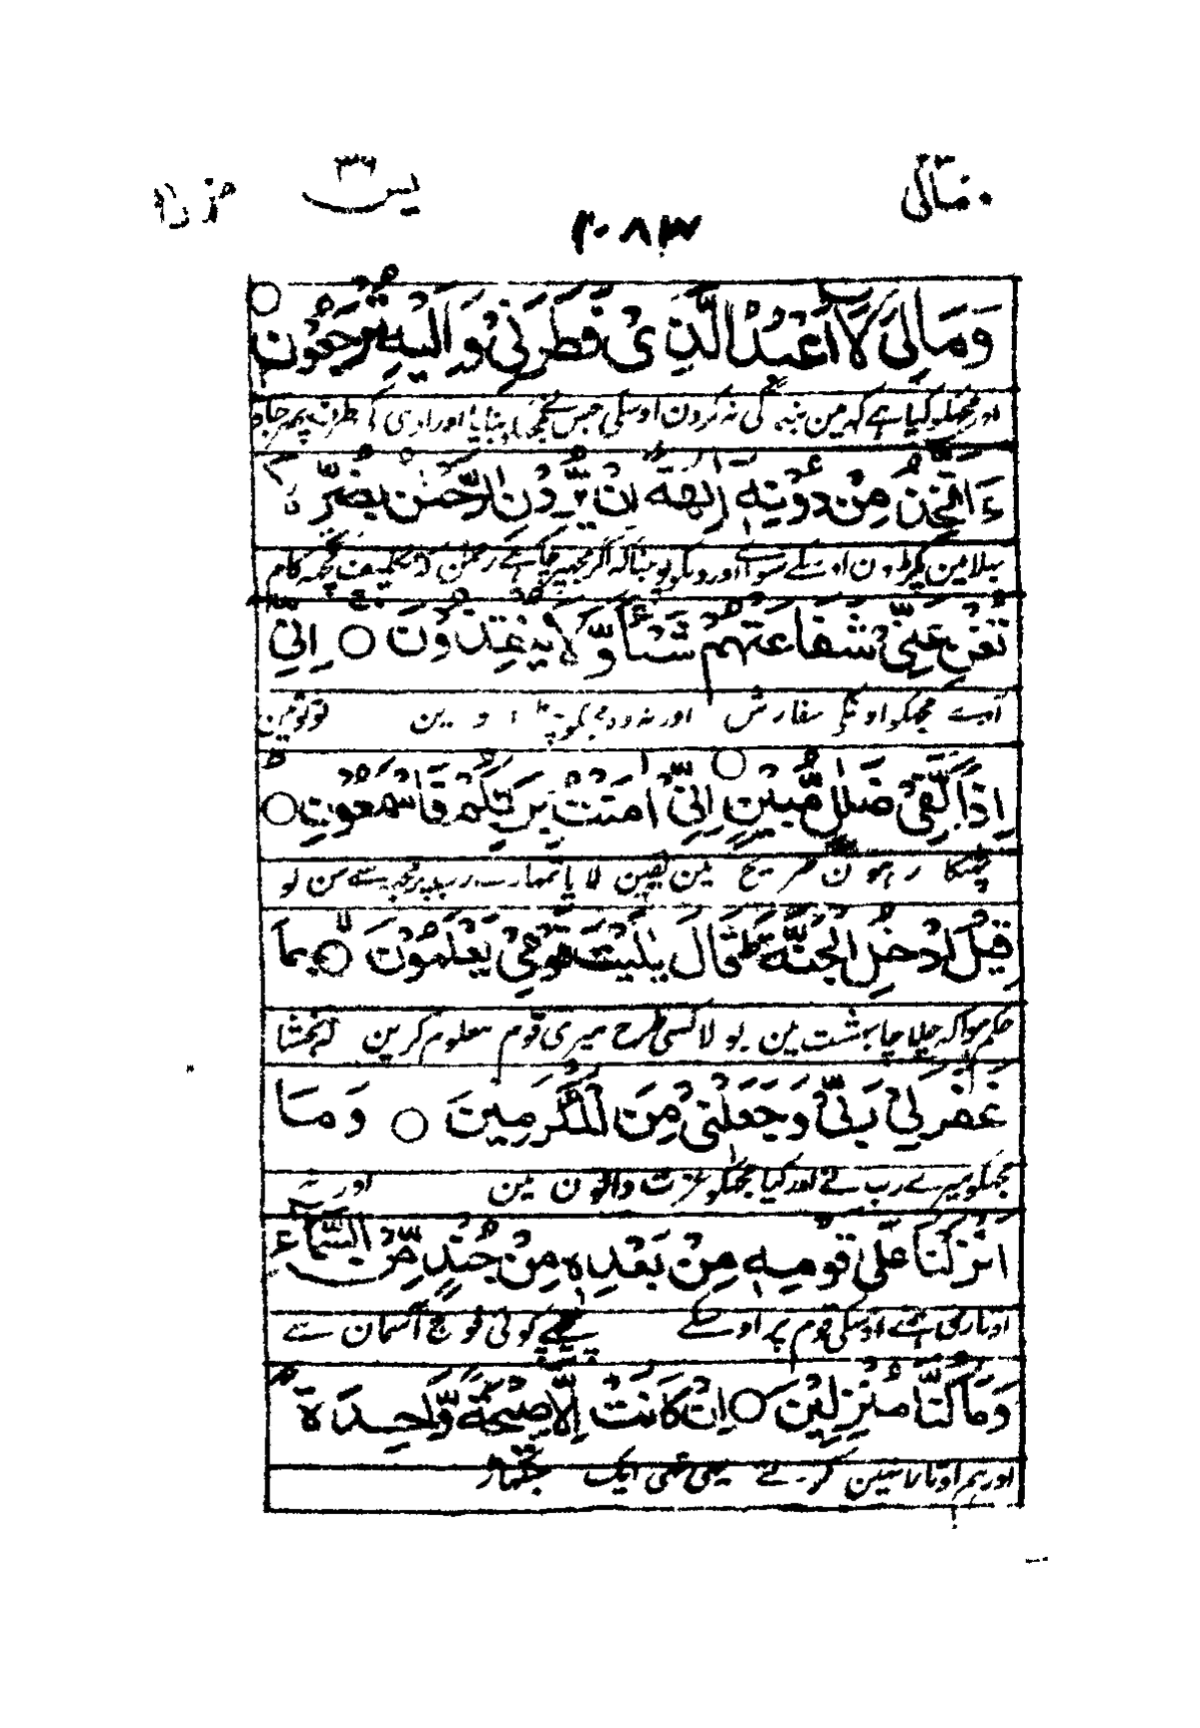 ومالی ٢٣
یٰسٓ ٣٦
٢٠٨٣
وَمَالِیَ لَآ اَعْبُدُ الَّذِیْ فَطَرَنِیْ وَاِلَیْهِ تُرْجَعُوْنَ ○
اور مجھکو کیا ہے کہ مین بندگی نہ کرون اوسکی جس نے مجھکو بنایا اور اوسی کی طرف پھر جاؤ
ءَاَتَّخِذُ مِنْ دُوْنِهٖٓ اٰلِهَةً اِنْ یُّرِدْنِ الرَّحْمٰنُ بِضُرٍّ لَّا
بھلا مین پکڑون اوسکے سواے اورونکو پوجنا کہ اگر مجھپر چاہے رحمٰن تکلیف کچھ کام
تُغْنِ عَنِّیْ شَفَاعَتُهُمْ شَیْـًٔا وَّلَا یُنْقِذُوْنِ ○ اِنِّیْٓ
آوے مجھکو اونکی سفارش اور نہ وہ مجکو چھڑاوین تو تو مین
اِذًا لَّفِیْ ضَلٰلٍ مُّبِیْنٍ ○ اِنِّیْٓ اٰمَنْتُ بِرَبِّكُمْ فَاسْمَعُوْنِ ○
بھٹکا رہون صریح مین یقین لایا تمہارے رب پر مجھسے سن لو
قِیْلَ ادْخُلِ الْجَنَّةَ ؕ قَالَ یٰلَیْتَ قَوْمِیْ یَعْلَمُوْنَ ○ بِمَا
حکم ہوا کہ چلا جا بہشت مین بولا کسی طرح میری قوم معلوم کرین کہ بخشا
غَفَرَ لِیْ رَبِّیْ وَجَعَلَنِیْ مِنَ الْمُكْرَمِیْنَ ○ وَمَآ
مجھکو میرے رب نے اور کیا مجھکو عزت والون مین اور نہ
اَنْزَلْنَا عَلٰی قَوْمِهٖ مِنْ بَعْدِهٖ مِنْ جُنْدٍ مِّنَ السَّمَآءِ
اوتاری ہمنے اوسکی قوم پر اوسکے پیچھے کوئی فوج آسمان سے
وَمَا كُنَّا مُنْزِلِیْنَ ○ اِنْ كَانَتْ اِلَّا صَیْحَةً وَّاحِدَةً
اور ہم اوتارا نہین کرتے یہی تھی ایک چنگھاڑ